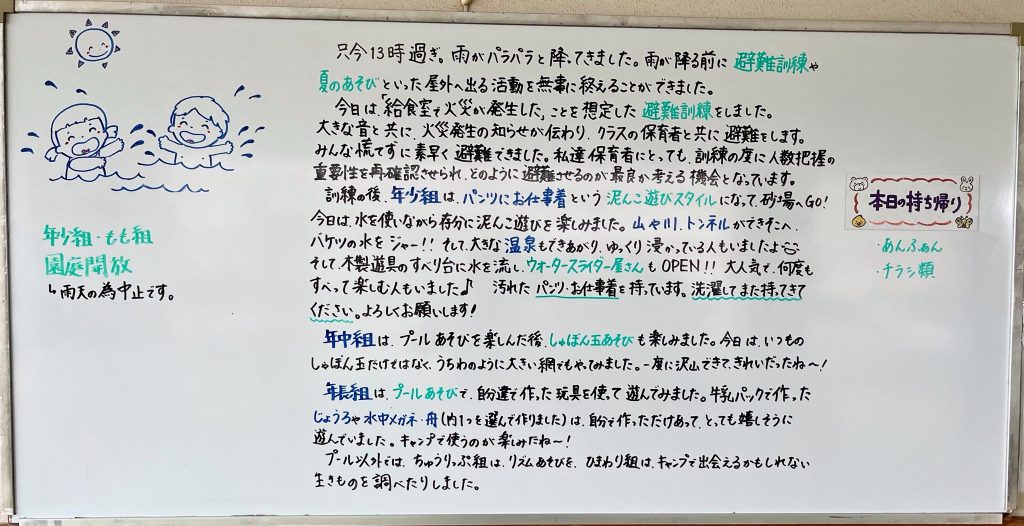 只今13時過ぎ。雨がパラパラと降ってきました。雨が降る前に避難訓練や
夏のあそびといった屋外へ出る活動を無事に終えることができました。
今日は、「給食室で火災が発生した」ことを想定した避難訓練をしました。
大きな音と共に、火災発生の知らせが伝わり、クラスの保育者と共に避難をします。
みんな慌てずに素早く避難できました。私達保育者にとっても、訓練の度に人数把握の
重要性を再確認させられ、どのように避難させるのが最良か考える機会となっています。
訓練の後、年少組は、パンツにお仕事着という泥んこ遊びスタイルになって、砂場へGO!
今日は、水を使いながら存分に泥んこ遊びを楽しみました。山や川、トンネルができそこへ、
バケツの水をジャー!! そして、大きな温泉もできあがり、ゆっくり浸かっている人もいましたよ
そして、木製遊具のすべり台に水を流し、ウォータースライダー屋さんもOPEN!! 大人気で、何度も
すべって楽しむ人もいました♪ 汚れたパンツ・お仕事着を持っています。洗濯してまた持ってきて
ください。よろしくお願いします!
年中組は、プールあそびを楽しんだ後、しゃぼん玉あそびも楽しみました。今日は、いつもの
しゃぼん玉だけではなく、うちわのように大きい網でもやってみました。一度に沢山できて、きれいだったね〜!
年長組は、プールあそびで、自分達で作った玩具を使って遊んでみました。牛乳パックで作った
じょうろや水中メガネ・舟(内1つを選んで作りました)は、自分で作っただけあって、とっても嬉しそうに
遊んでいました。キャンプで使うのが楽しみだね〜!
プール以外では、ちゅうりっぷ組は、リズムあそびを、ひまわり組は、キャンプで出会えるかもしれない
生きものを調べたりしました。
年少組・もも組
園庭開放
↳雨天の為中止です。
本日の持ち帰り
・あんふぁん
・チラシ類